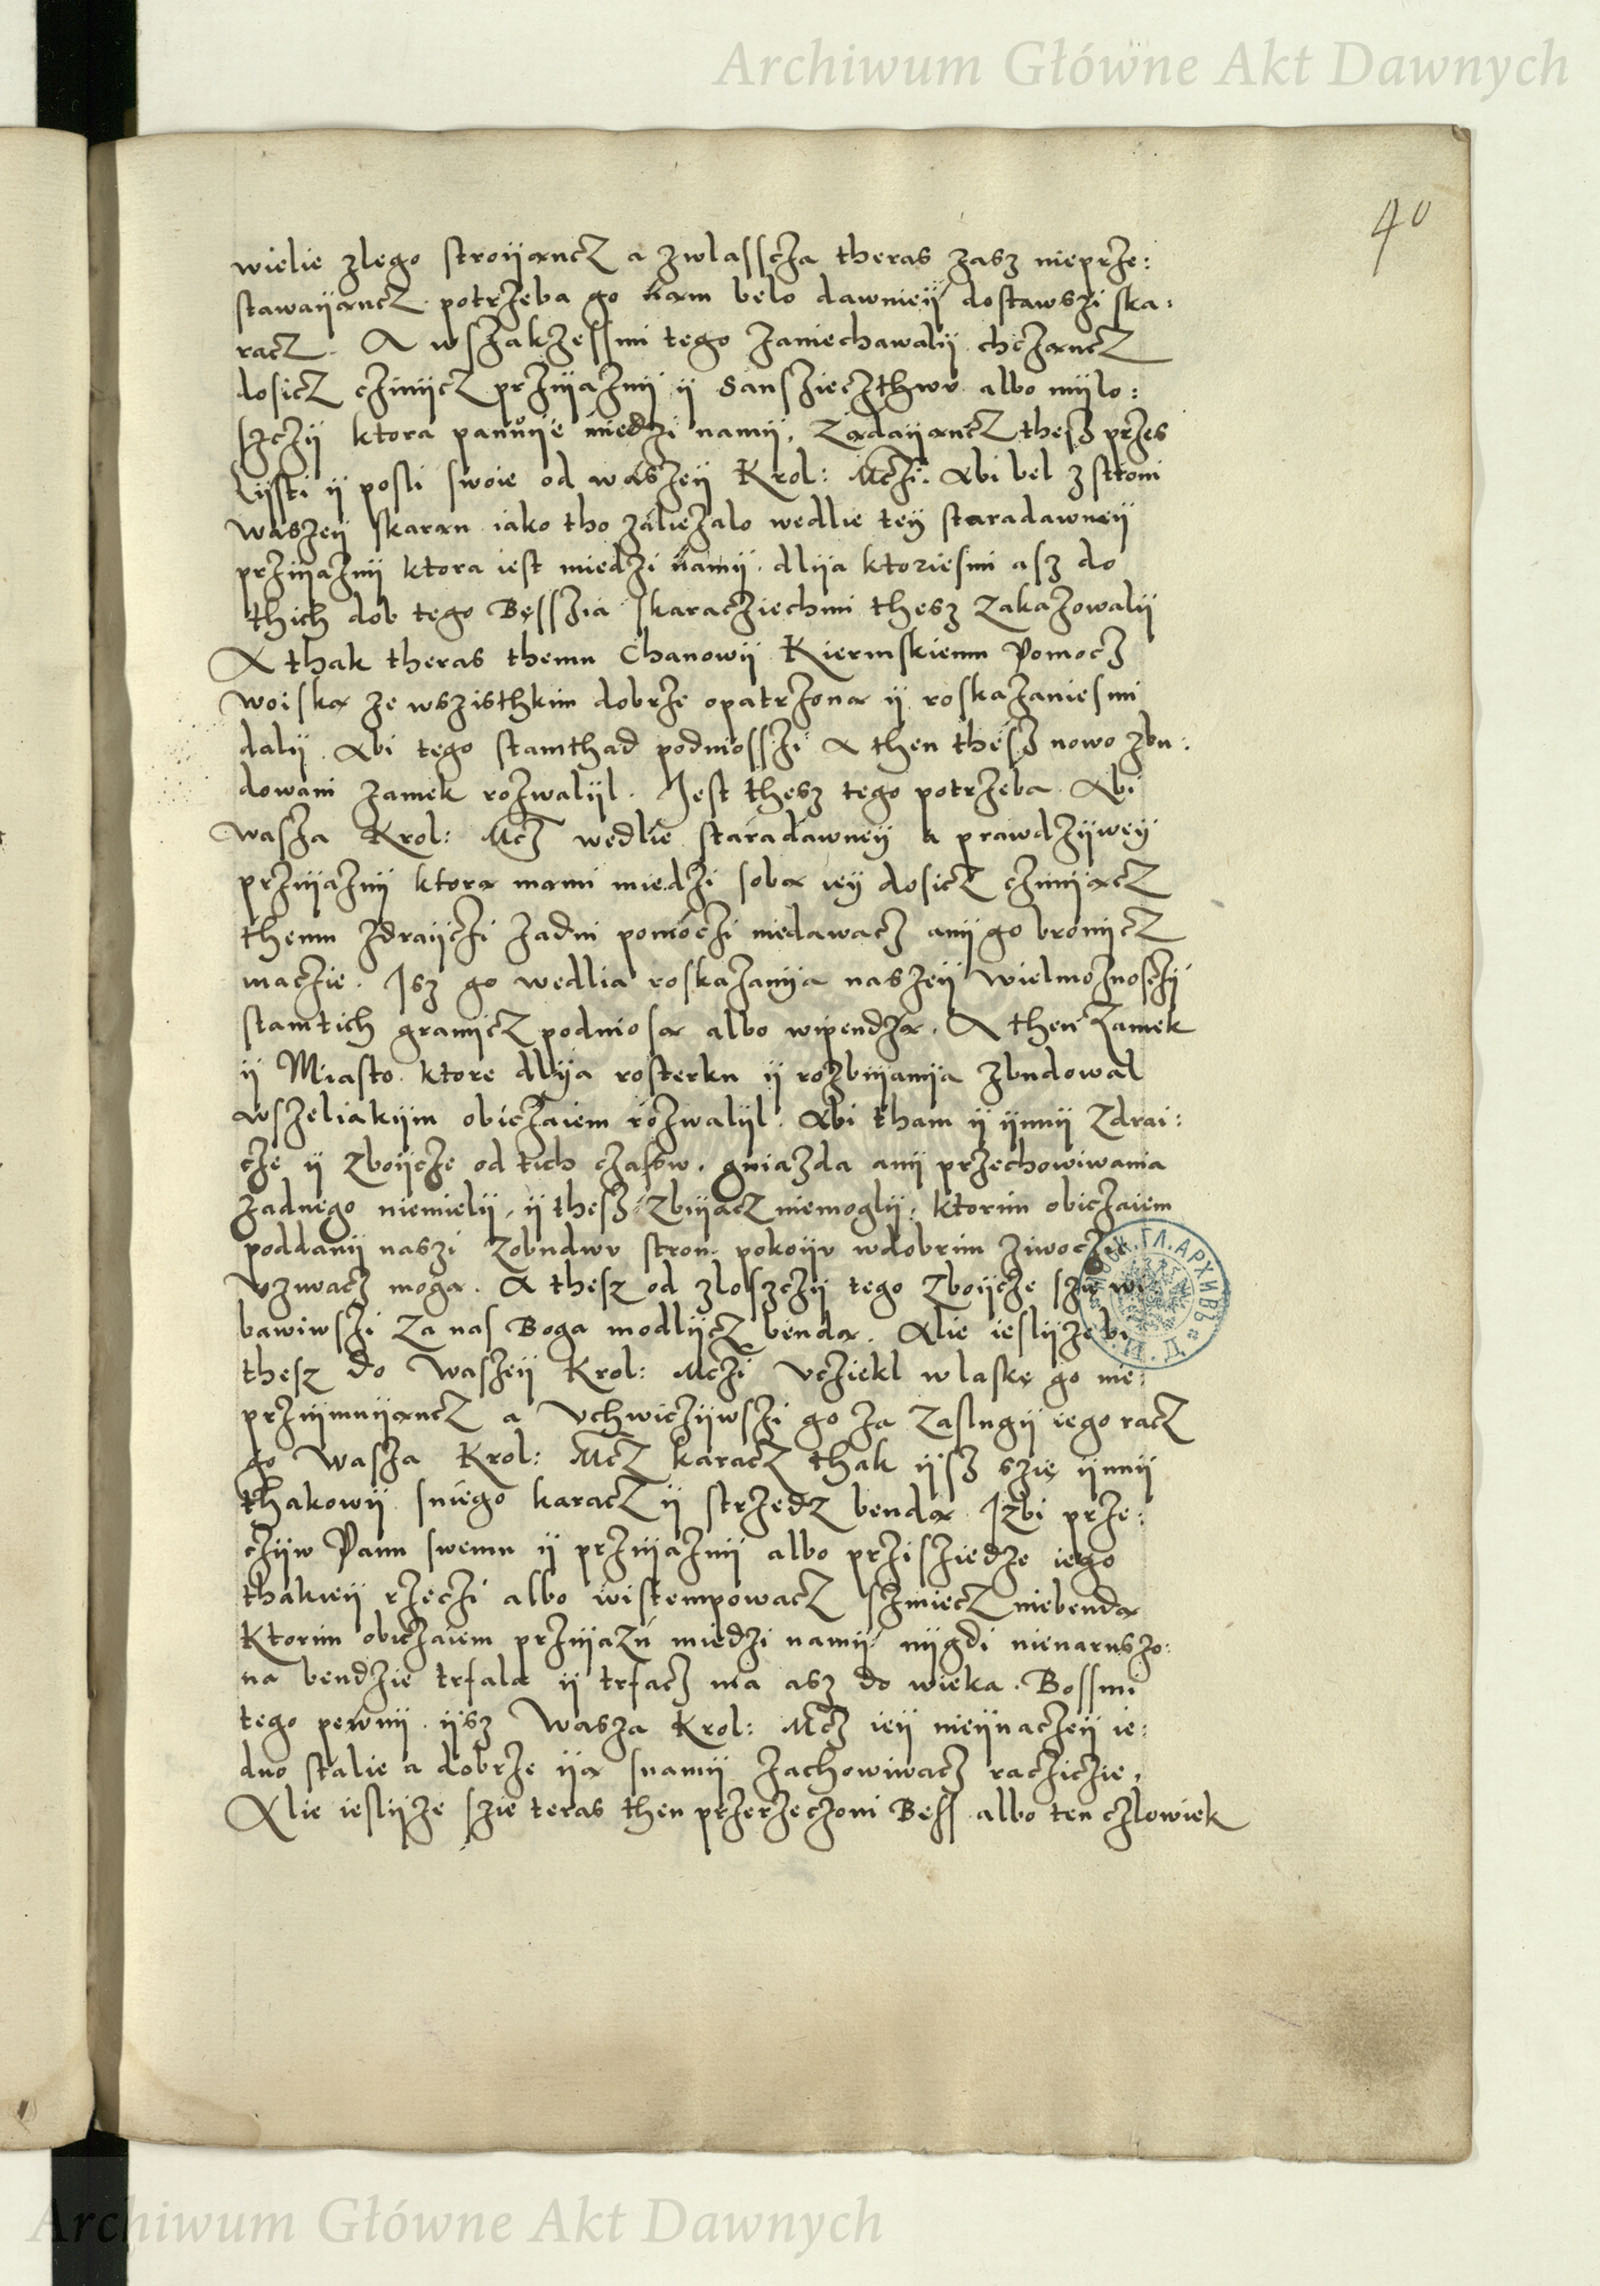 Archiwum Główne Akt Dawnych
40
wielie zlego stroyancz a zwlasscza theras zasz nieprze:
stawayancz potrzeba go nam belo dawniey dostawszi ska:
racz. A wszakzessmi tego zaniechawaly chczancz
dosicz czinycz przyiazny y Sansziecztwu albo mylo:
szczy ktora panuye miedzi namy, Zadayancz thesz przes
Lysti y posli swoie od waszey Krol: Mczi. Abi bel z stroni
waszey skaran iako tho zaliezalo wedlie tey staradawney
przyiazny ktora iest miedzi namy. dlya ktoriesmi asz do
thich dob tego Besszia skaracziechmi thesz zakazowaly
A thak theras themu Chanowy Kiermskiemu Pomocz
woiska ze wszisthkim dobrze opatrzona y roskazaniesmi
daly. Abi tego stamthad podniosszi A then thesz nowo zbu:
dowani zamek rozwalyl. Jest thesz tego potrzeba. Abi
wasza Krol: Mcz wedlie staradawney a prawdzywey
przyiazny ktora mami miedzi soba iey dosicz czinyacz
themu zdrayczi zadni pomoczi niedawacz any go bronycz
maczie. Isz go wedlia roskazanya naszey wielmoznosczy
stamtich granycz podniosa albo wipendza. A then Zamek
y Miasto ktore dlya rosterku y rozbiyanya zbudowal
wszeliakym obiczaiem rozwalyl. Abi tham y ynny Zdrai:
cze y Zboycze od tich czasow. gniazda any przechowiwania
zadnego niemiely, y thesz zbyacz niemogly, ktorim obiczaiem
poddany naszi zobudwu stron pokoyu wdobrim ziwoczie
Uzuwacz moga. A thesz od zlosczy tego Zboycze szie wi
bawiwszi za nas Boga modlycz benda. Alie ieslyzebi
thesz do Waszey Krol: Mczi Ucziekl w laske go nie:
przymuyancz a Uchwiczywszi go za zaslugy iego racz
go Wasza Krol: Mcz karacz thak ysz szie ynny
thakowy sniego karacz y strzedz benda Izbi prze:
czyw Panu swemu y przyiazny albo przisziedze iego
thakiey rzeczi albo wistempowacz szmiecz niebenda
Ktorim obiczaiem przyiazn miedzi namy nygdi nienaruszo:
na bendzie trfala y trfacz ma asz do wieka. Bossmi
tego pewny ysz Wasza Krol: Mcz iey nieynaczey ie:
dno stalie a dobrze ya snamy zachowiwacz raczicie,
Alie ieslyze szie teras then przerzeczoni Bess albo ten czlowiek
Archiwum Główne Akt Dawnych